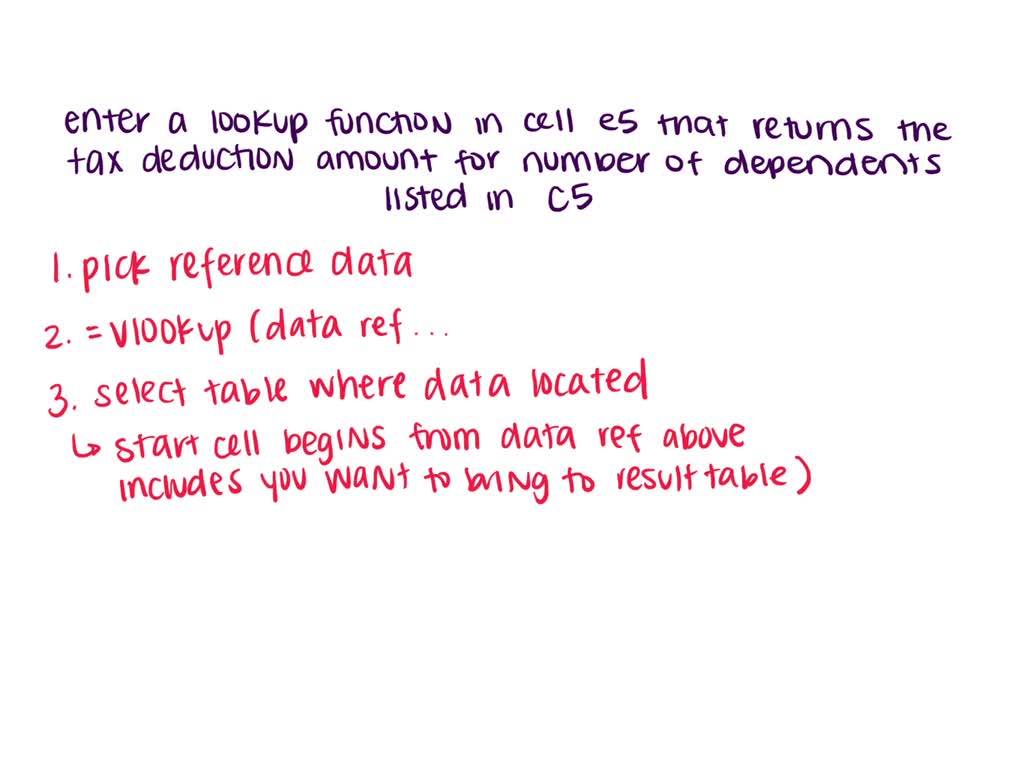 enter a lookup function in cell e5 that returns the
tax deduction amount for number of dependents
listed in C5
1. pick reference data
2. = Vlookup (data ref ...
3. select table where data located
↳ start cell begins from data ref above
includes you want to bring to result table)